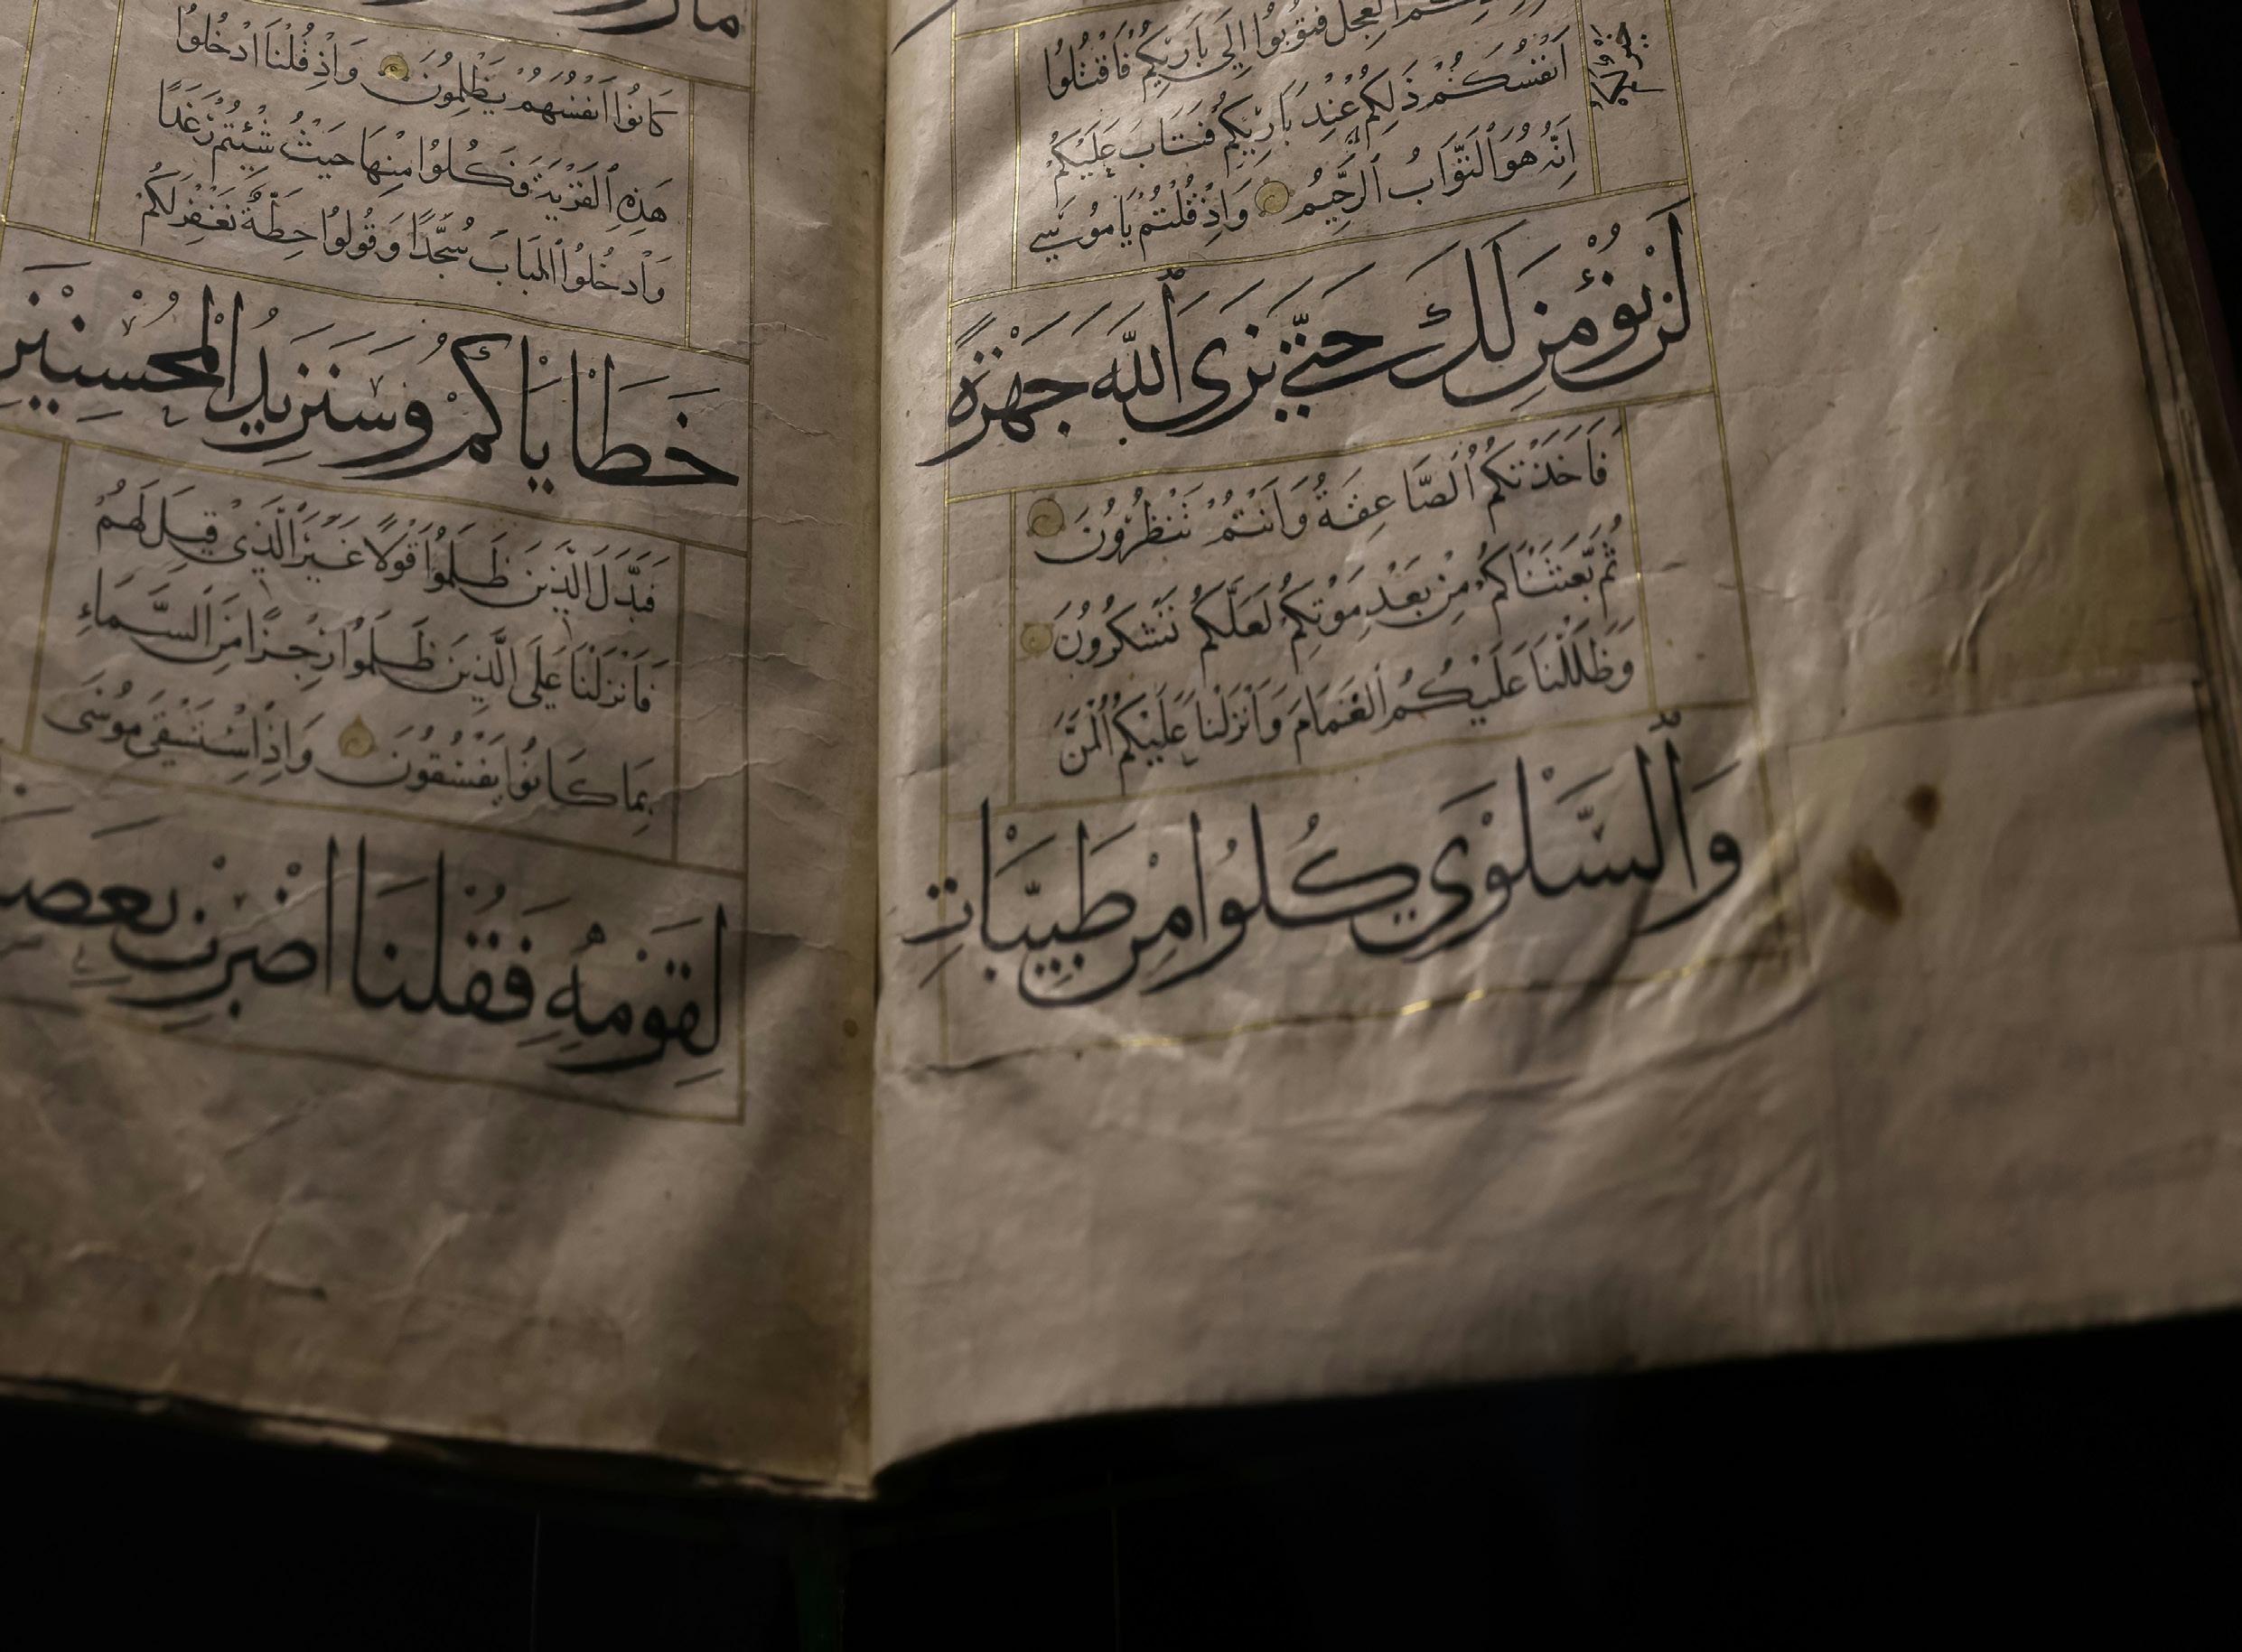 العِجْلَ فَتُوبُوا إِلَى بَارِئِكُمْ فَاقْتُلُوا
أَنْفُسَكُمْ ذَلِكُمْ عِنْدَ بَارِئِكُمْ فَتَابَ عَلَيْكُمْ
إِنَّهُ هُوَ التَّوَّابُ الرَّحِيمُ وَإِذْ قُلْتُمْ يَا مُوسَى
لَنْ نُؤْمِنَ لَكَ حَتَّى نَرَى اللَّهَ جَهْرَةً
فَأَخَذَتْكُمُ الصَّاعِقَةُ وَأَنْتُمْ تَنْظُرُونَ
ثُمَّ بَعَثْنَاكُمْ مِنْ بَعْدِ مَوْتِكُمْ لَعَلَّكُمْ تَشْكُرُونَ
وَظَلَّلْنَا عَلَيْكُمُ الْغَمَامَ وَأَنْزَلْنَا عَلَيْكُمُ الْمَنَّ
وَالسَّلْوَى كُلُوا مِنْ طَيِّبَاتِ
كَانُوا أَنْفُسَهُمْ يَظْلِمُونَ وَإِذْ قُلْنَا ادْخُلُوا
هَذِهِ الْقَرْيَةَ فَكُلُوا مِنْهَا حَيْثُ شِئْتُمْ رَغَدًا
وَادْخُلُوا الْبَابَ سُجَّدًا وَقُولُوا حِطَّةٌ نَغْفِرْ لَكُمْ
خَطَايَاكُمْ وَسَنَزِيدُ الْمُحْسِنِينَ
فَبَدَّلَ الَّذِينَ ظَلَمُوا قَوْلًا غَيْرَ الَّذِي قِيلَ لَهُمْ
فَأَنْزَلْنَا عَلَى الَّذِينَ ظَلَمُوا رِجْزًا مِنَ السَّمَاءِ
بِمَا كَانُوا يَفْسُقُونَ وَإِذِ اسْتَسْقَى مُوسَى
لِقَوْمِهِ فَقُلْنَا اضْرِبْ بِعَصَ